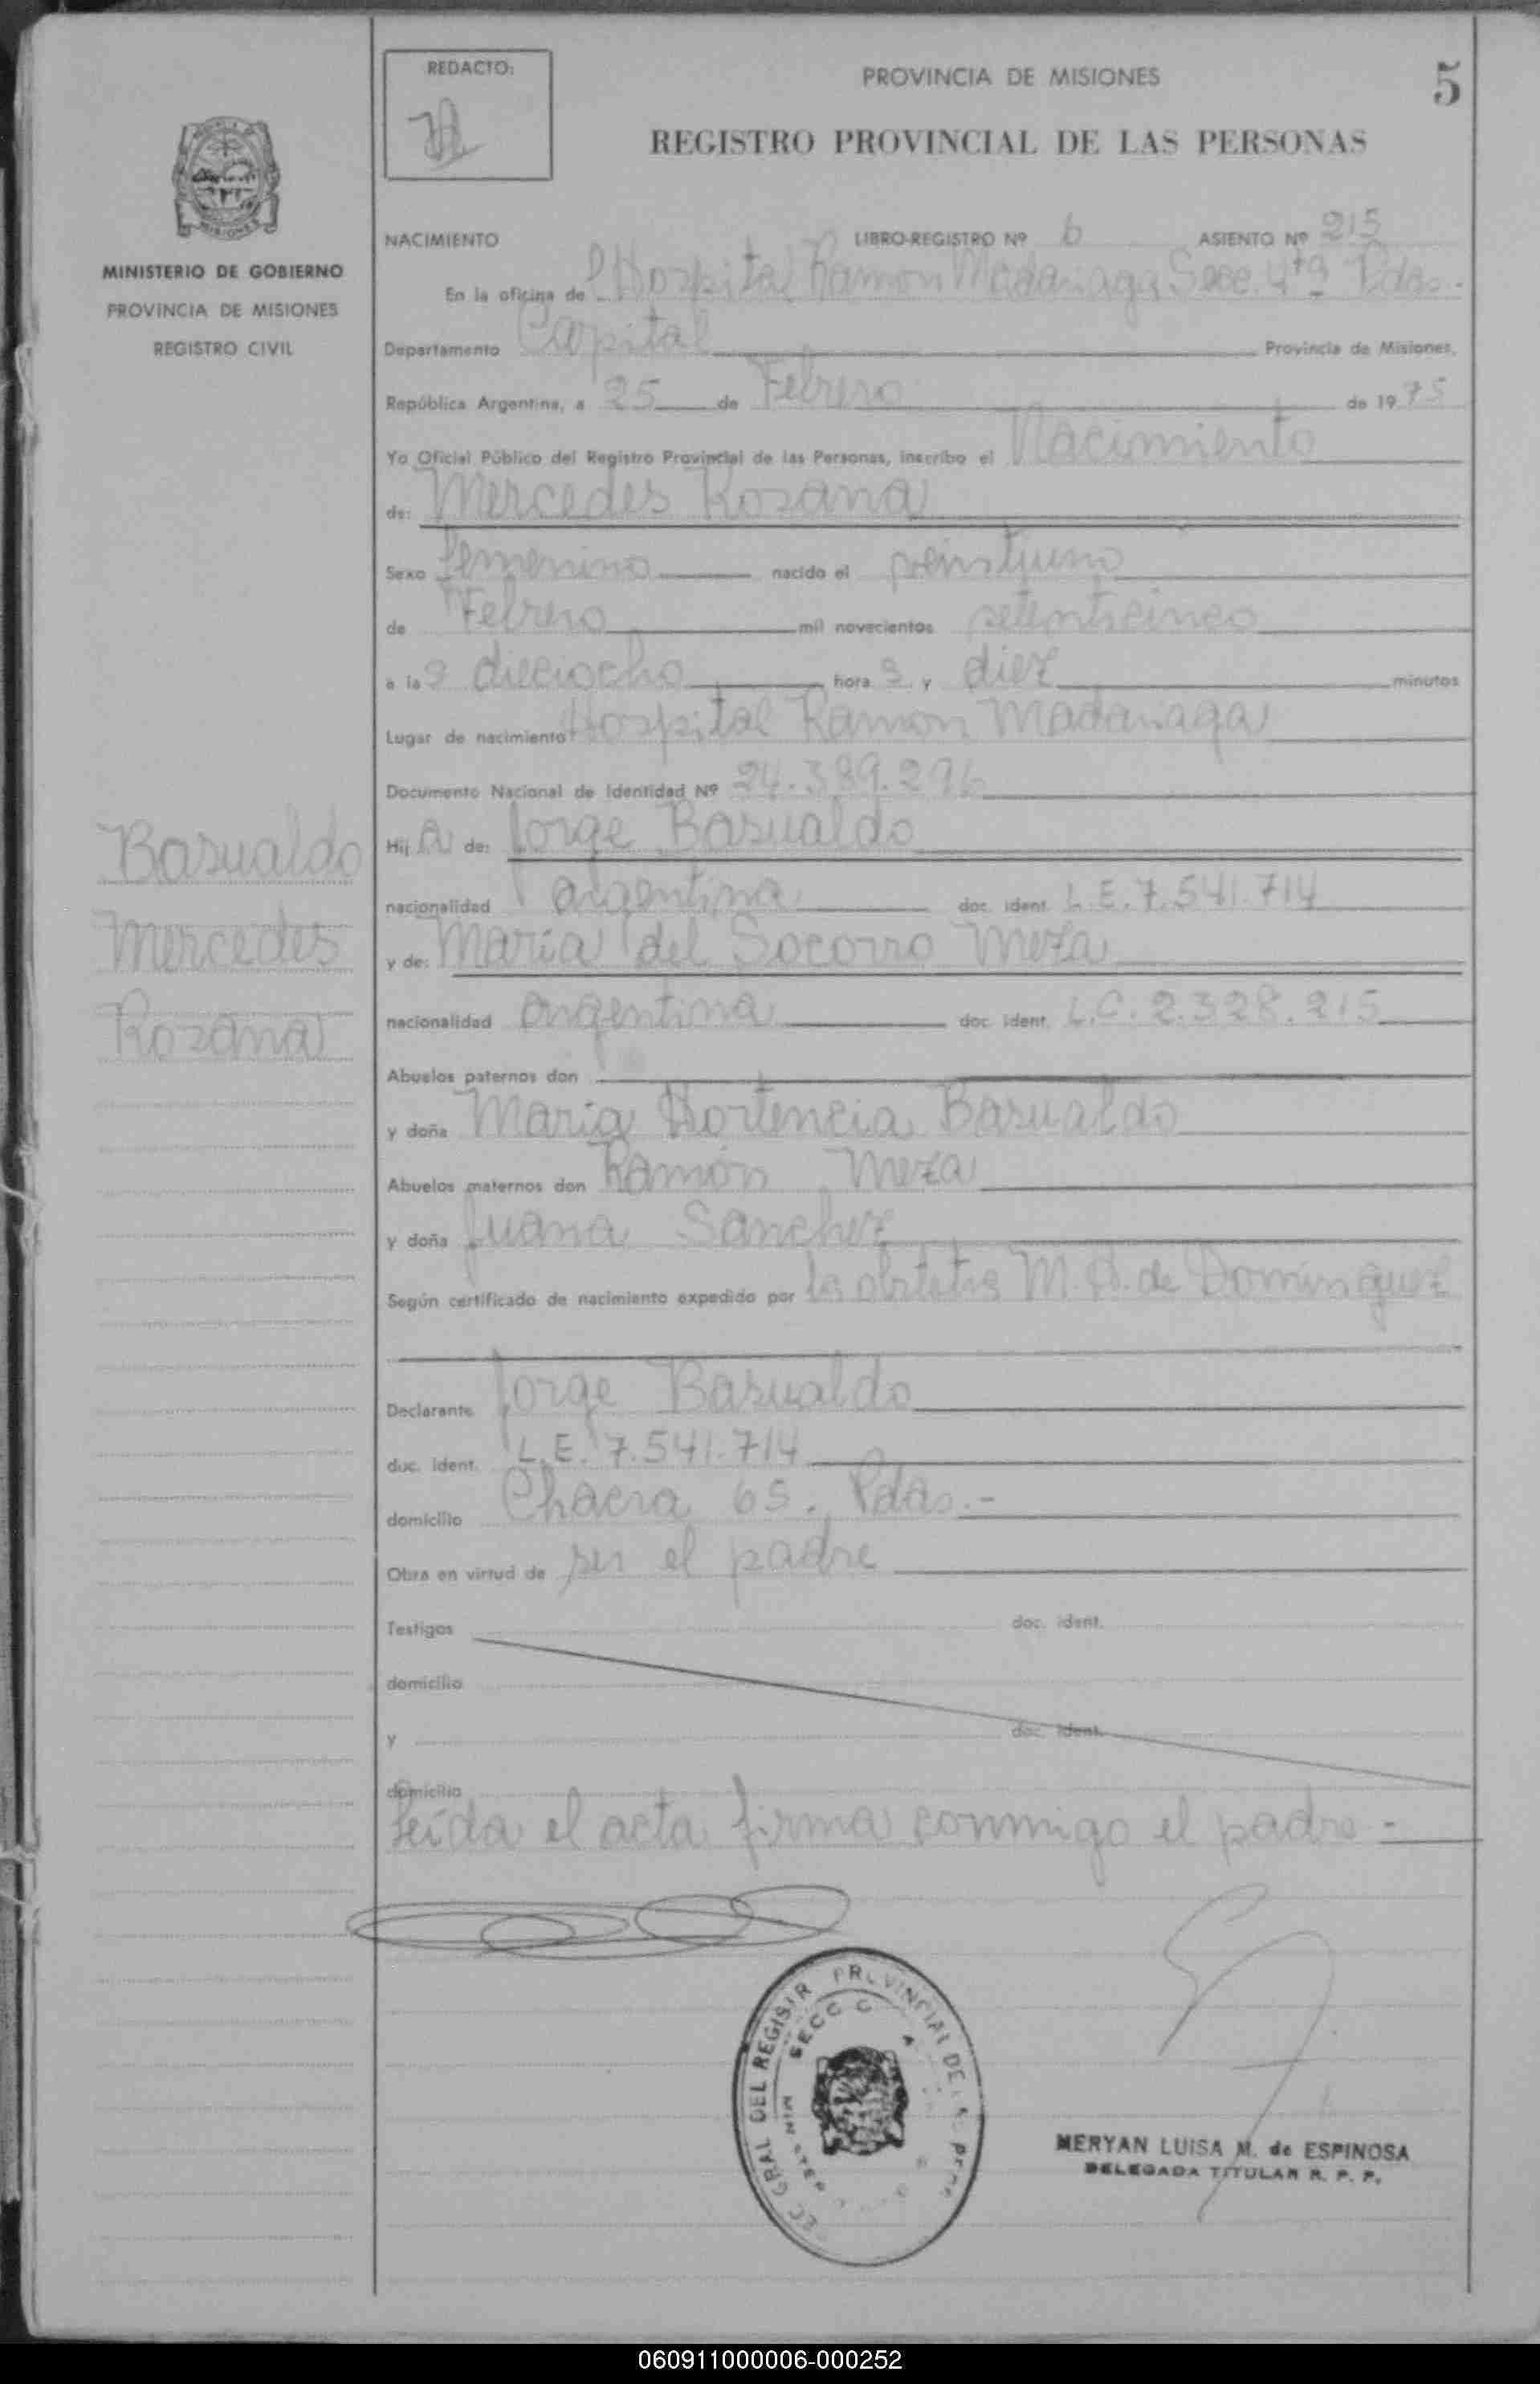 REDACTO:
PROVINCIA DE MISIONES
5
REGISTRO PROVINCIAL DE LAS PERSONAS
MINISTERIO DE GOBIERNO
PROVINCIA DE MISIONES
REGISTRO CIVIL
NACIMIENTO LIBRO-REGISTRO Nº 6 ASIENTO Nº 215
En la oficina de Hospital Ramon Madariaga Secc. 4ta Pdas.-
Departamento Capital Provincia de Misiones,
República Argentina, a 25 de Febrero de 1975
Yo Oficial Público del Registro Provincial de las Personas, inscribo el Nacimiento
de: Mercedes Rosana
Sexo femenino nacido el veintiuno
de Febrero mil novecientos setenticinco
a las dieciocho horas y diez minutos
Lugar de nacimiento Hospital Ramon Madariaga
Documento Nacional de Identidad Nº 24.389.296
Basualdo
Mercedes
Rosana
Hija de: Jorge Basualdo
nacionalidad argentina doc. ident. L.E. 7.541.714
y de: Maria del Socorro Meza
nacionalidad argentina doc. ident. L.C. 2.328.215
Abuelos paternos don
y doña Maria Hortencia Basualdo
Abuelos maternos don Ramón Meza
y doña Juana Sanchez
Según certificado de nacimiento expedido por la obstetra M. A. de Dominguez
Declarante Jorge Basualdo
doc. ident. L.E. 7.541.714
domicilio Chacra 65. Pdas.-
Obra en virtud de ser el padre
Testigos doc. ident.
domicilio
y doc. ident.
domicilio
Leída el acta firma conmigo el padre.-
GRAL DEL REGISTR PROVINCIAL DE
SECC
MERYAN LUISA M. de ESPINOSA
DELEGADA TITULAR R. P. P.
060911000006-000252